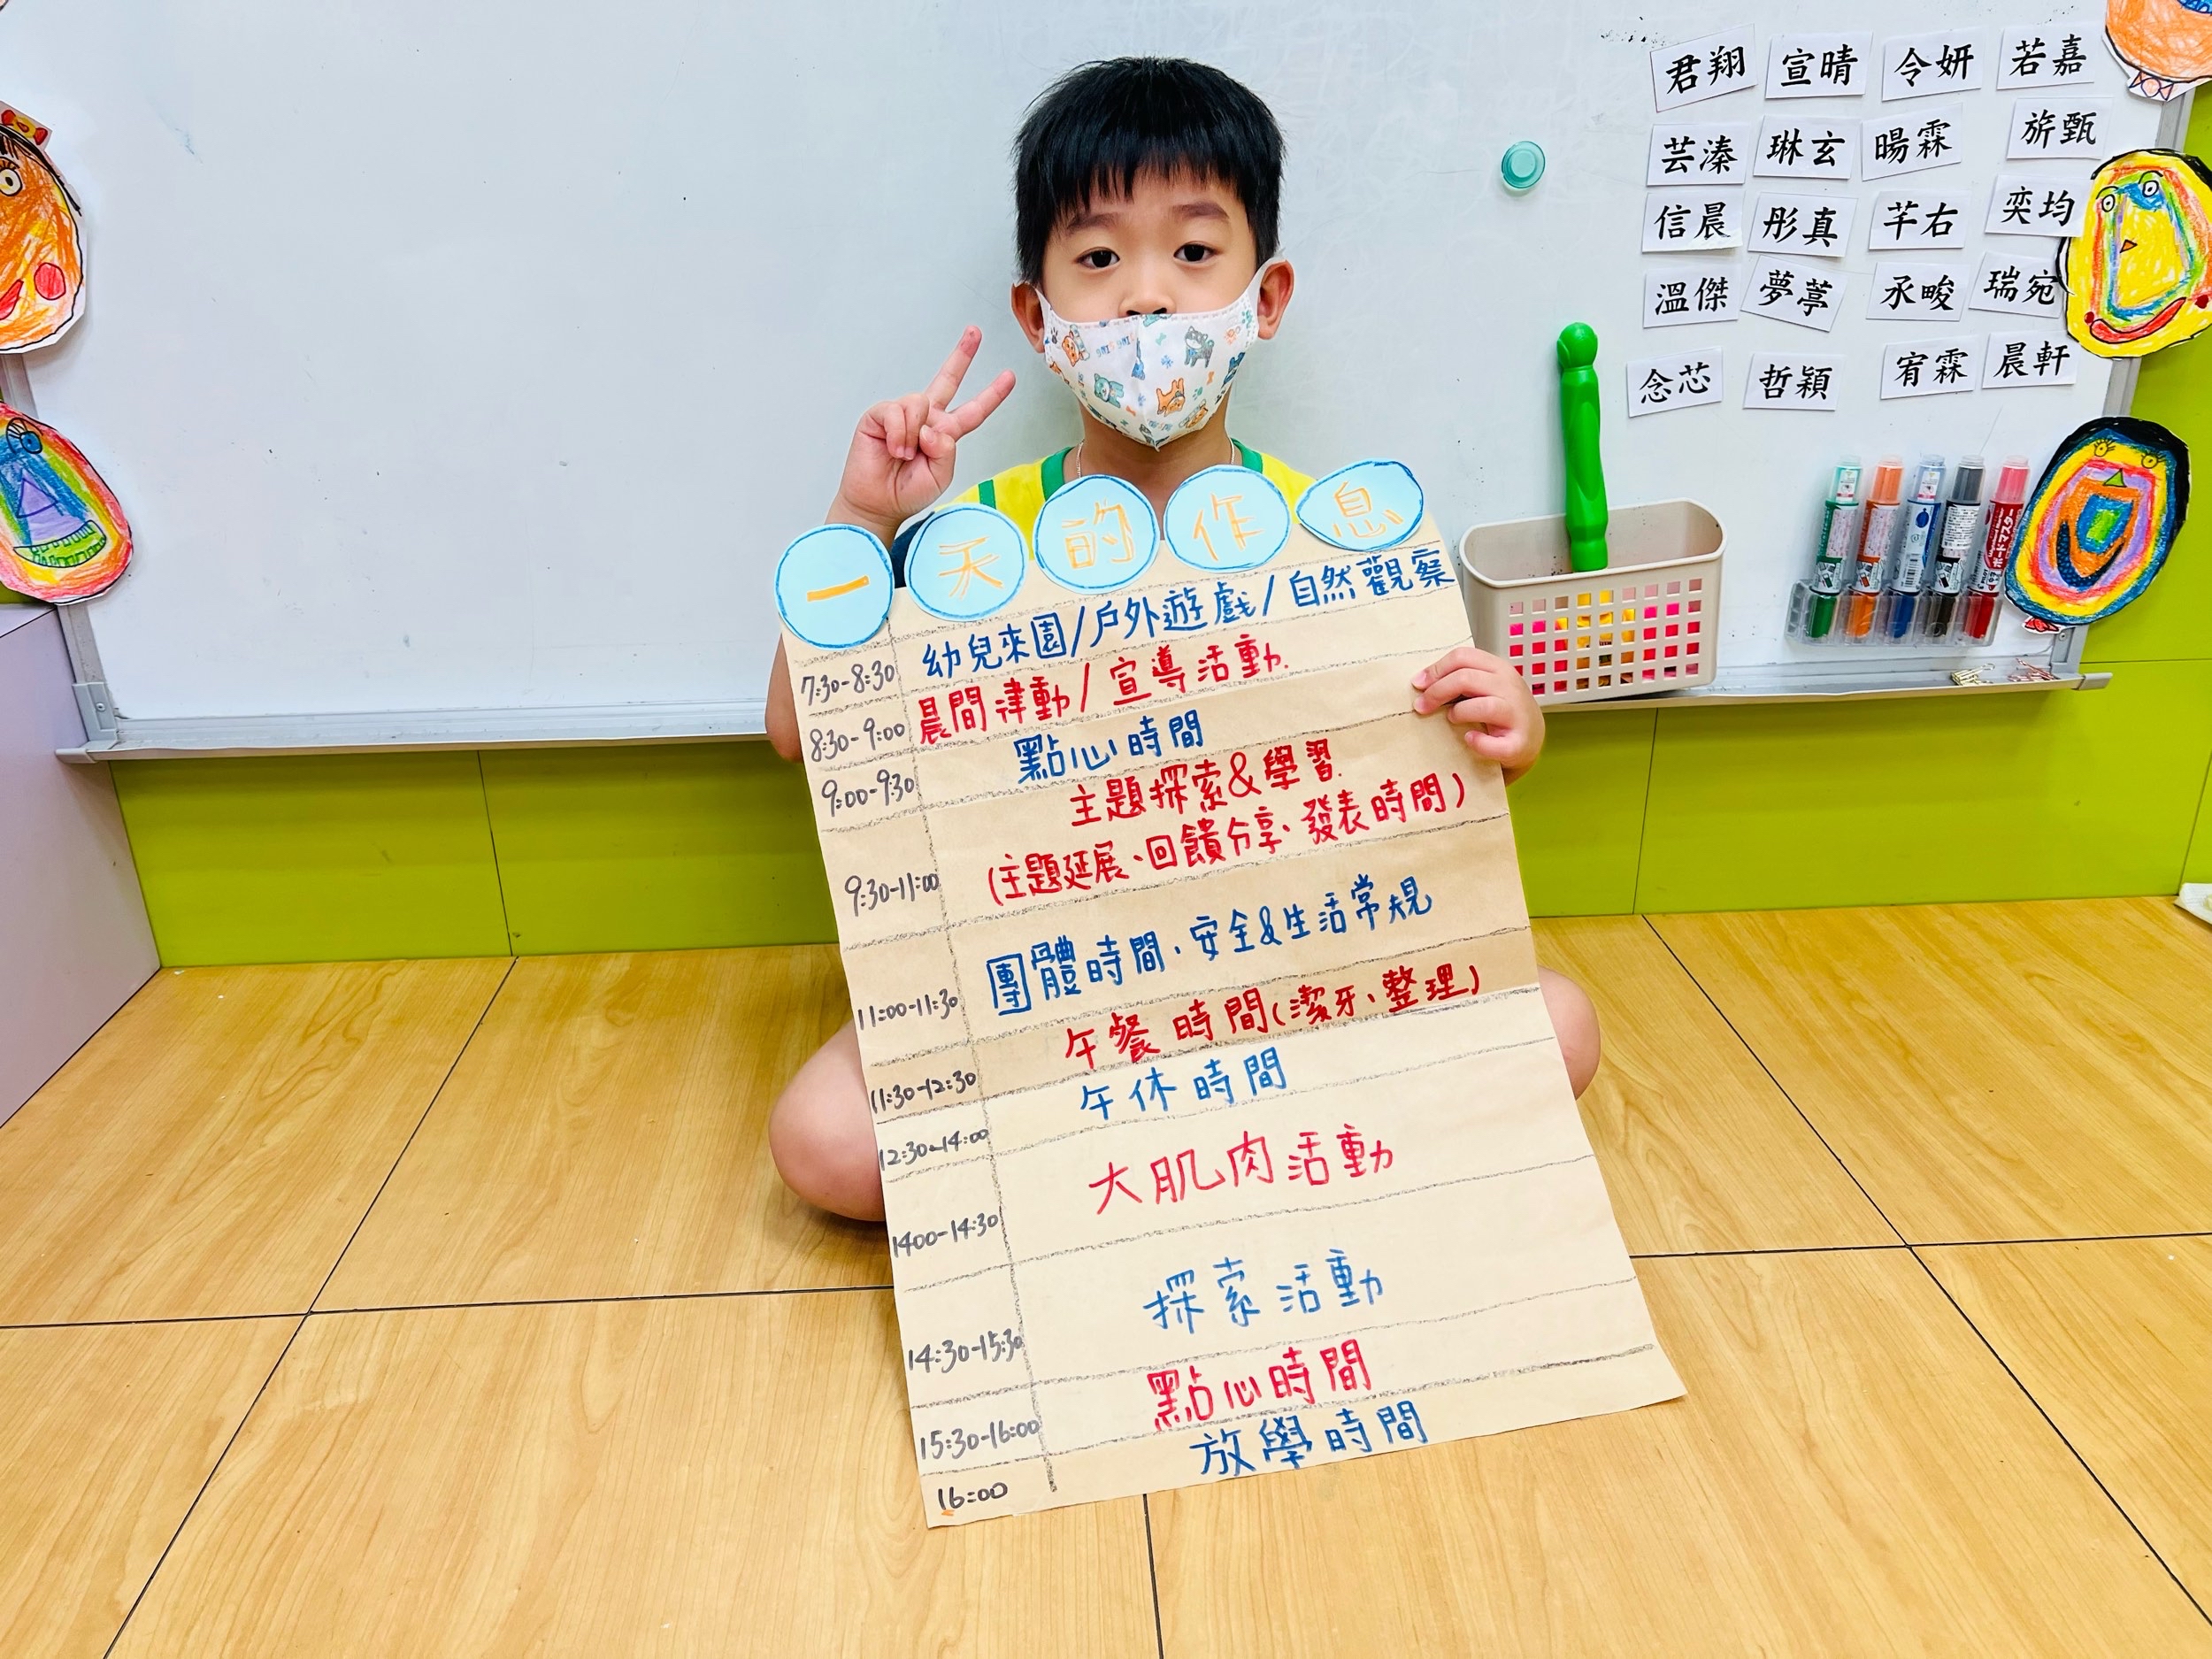 一天的作息
7:30-8:30 幼兒來園/戶外遊戲/自然觀察
8:30-9:00 晨間律動/宣導活動.
9:00-9:30 點心時間
9:30-11:00 主題探索&學習.
(主題延展、回饋分享、發表時間)
11:00-11:30 團體時間、安全&生活常規
11:30-12:30 午餐時間(潔牙、整理)
12:30~14:00 午休時間
1400-14:30 大肌肉活動
14:30-15:30 探索活動
15:30-16:00 點心時間
16:00 放學時間
君翔 宣晴 令妍 若嘉
芸溱 琳玄 暘霖 旂甄
信晨 彤真 芊右 奕均
溫傑 夢葶 承畯 瑞宛
念芯 哲穎 宥霖 晨軒